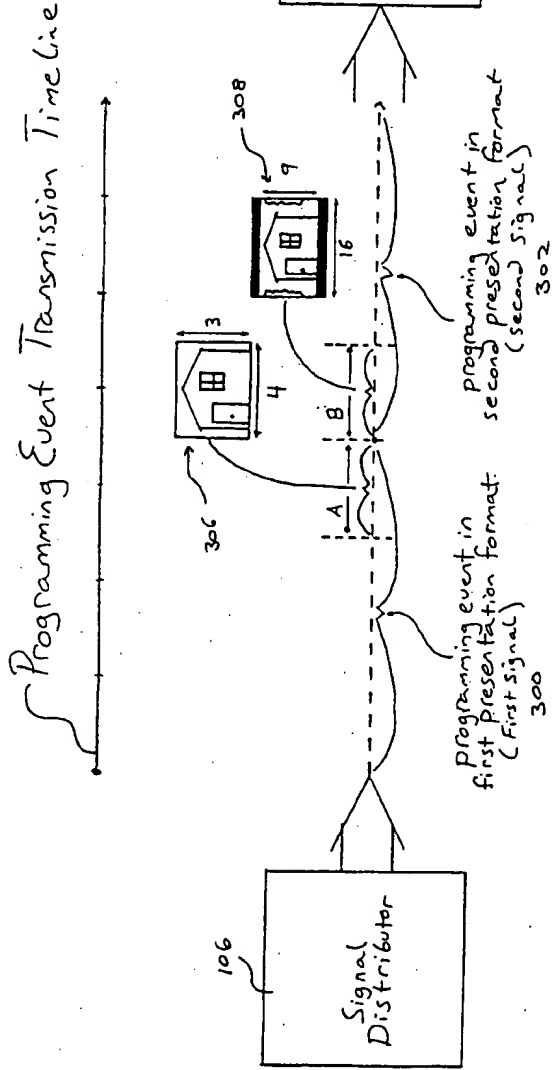 Programming Event Transmission TimeLine
306
3
4
308
9
16
A
B
106
Signal
Distributor
programming event in
first presentation format.
(First signal)
300
programming event in
second presentation format
(second signal)
302